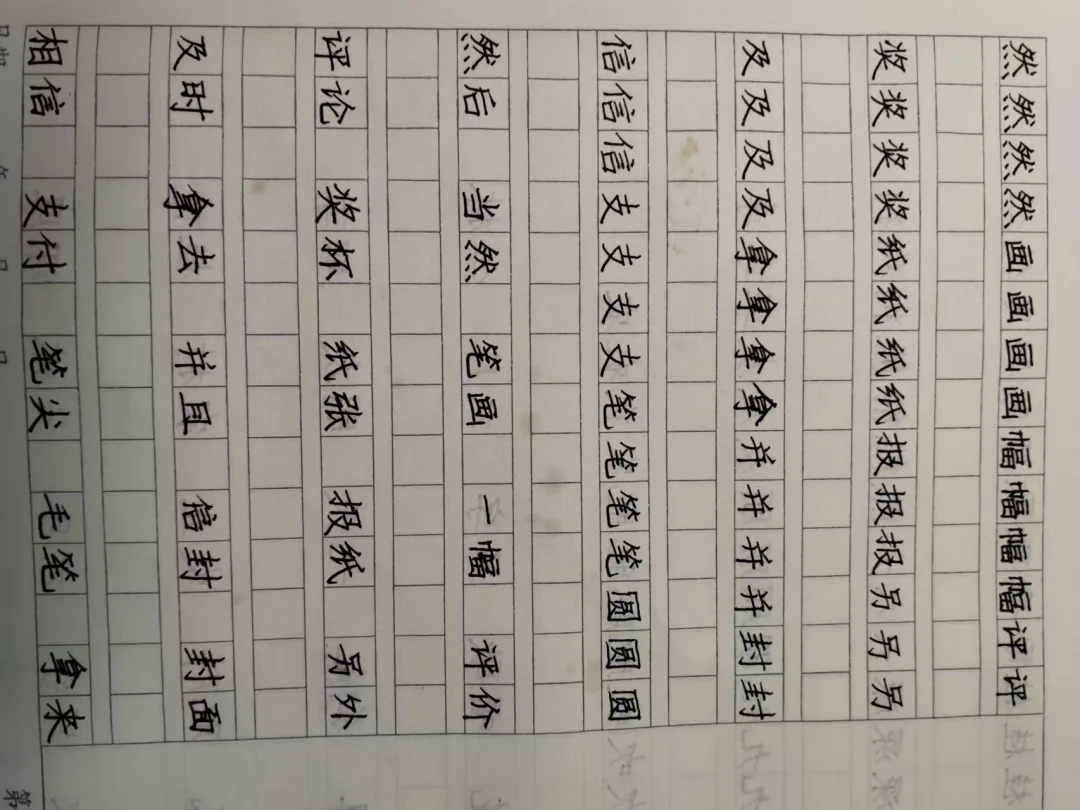 然然然然画画画画幅幅幅幅评评
奖奖奖奖纸纸纸纸报报报另另另
及及及及拿拿拿拿并并并并封封
信信信支支支支笔笔笔笔圆圆圆
然后 当然 笔画 一幅 评价
评论 奖杯 纸张 报纸 另外
及时 拿去 并且 信封 封面
相信 支付 笔尖 毛笔 拿来
第